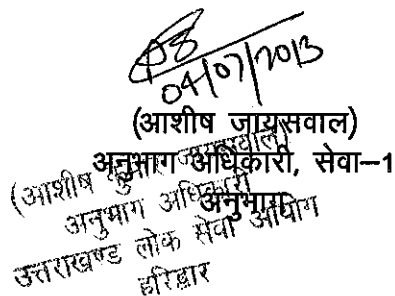 04/07/2013
(आशीष जायसवाल)
अनुभाग अधिकारी, सेवा–1
अनुभाग
(आशीष जायसवाल)
अनुभाग अधिकारी
उत्तराखण्ड लोक सेवा आयोग
हरिद्वार